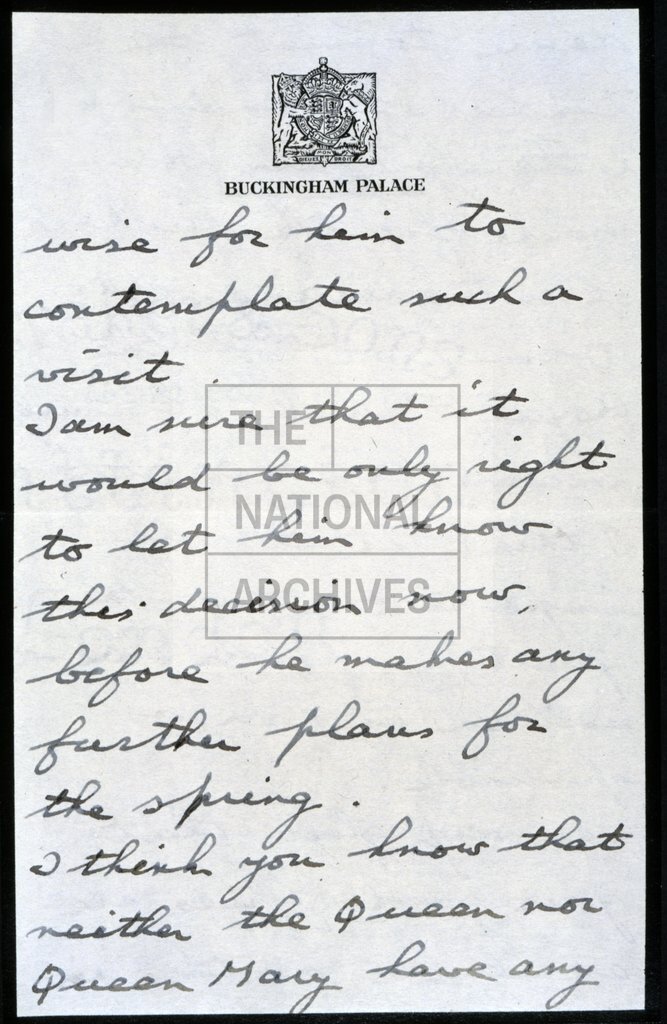 BUCKINGHAM PALACE
wise for him to
contemplate such a
visit
I am sure that it
would be only right
to let him know
this decision now,
before he makes any
further plans for
the spring.
I think you know that
neither the Queen nor
Queen Mary have any
THE
NATIONAL
ARCHIVES